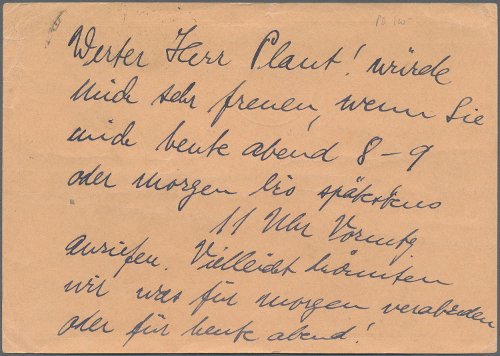 Werter Herr Plaut! würde
mich sehr freuen, wenn Sie
mich heute abend 8-9
oder morgen bis spätestens
11 Uhr Vormttg
anrufen. Vielleicht könnten
wir was für morgen verabreden
oder für heute abend!